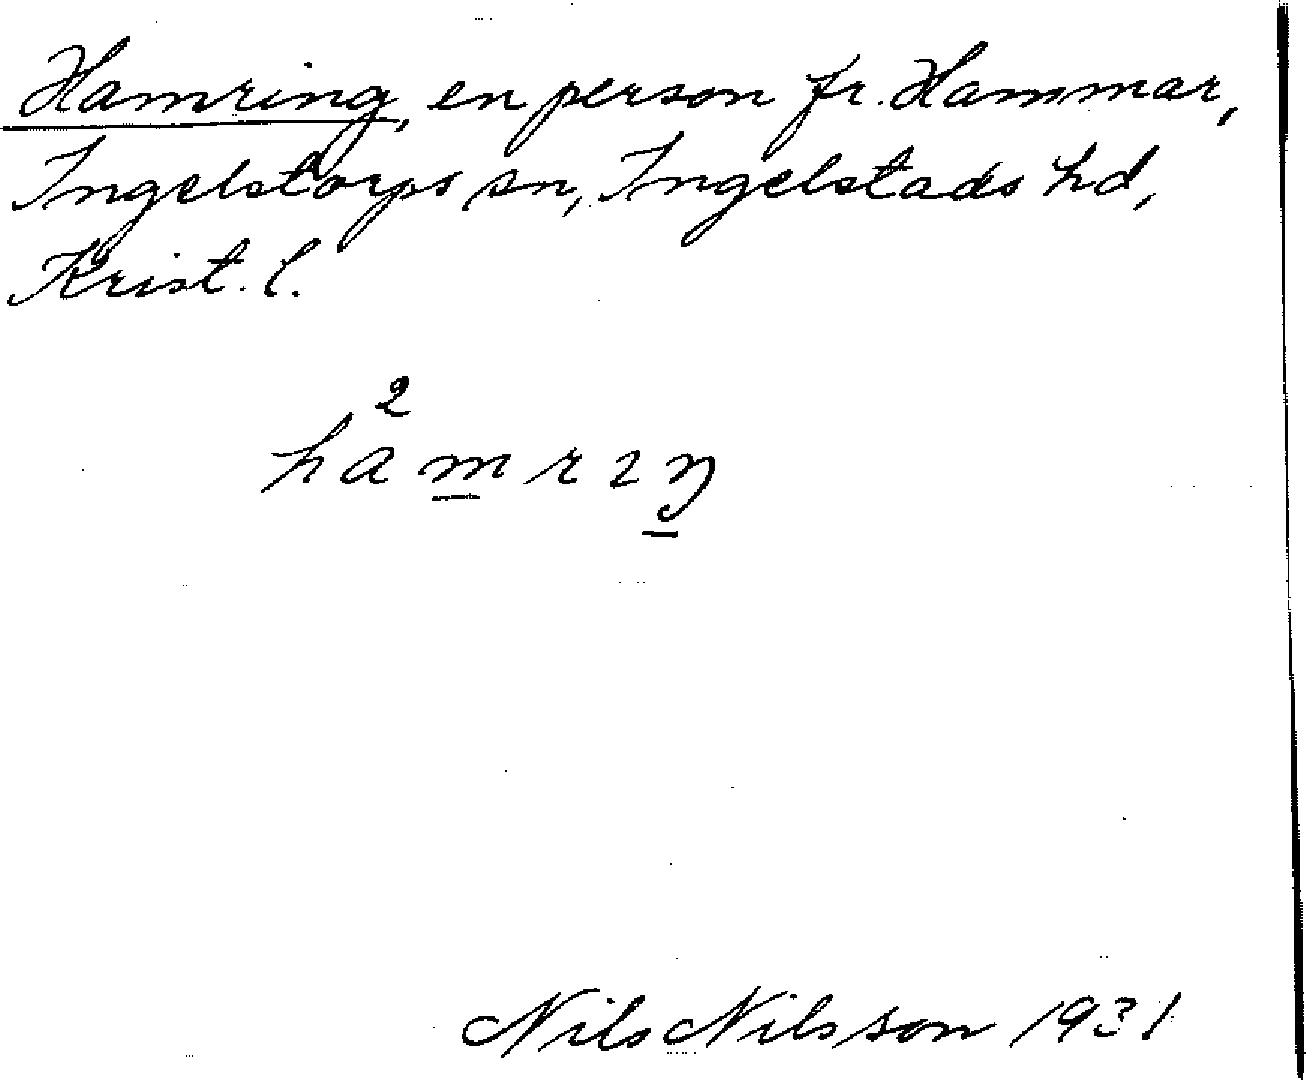 Hamring, en person fr. Hammar,
Ingelstorps sn, Ingelstads hd,
Krist. l.
2
hamrɪŋ
Nils Nilsson 1931